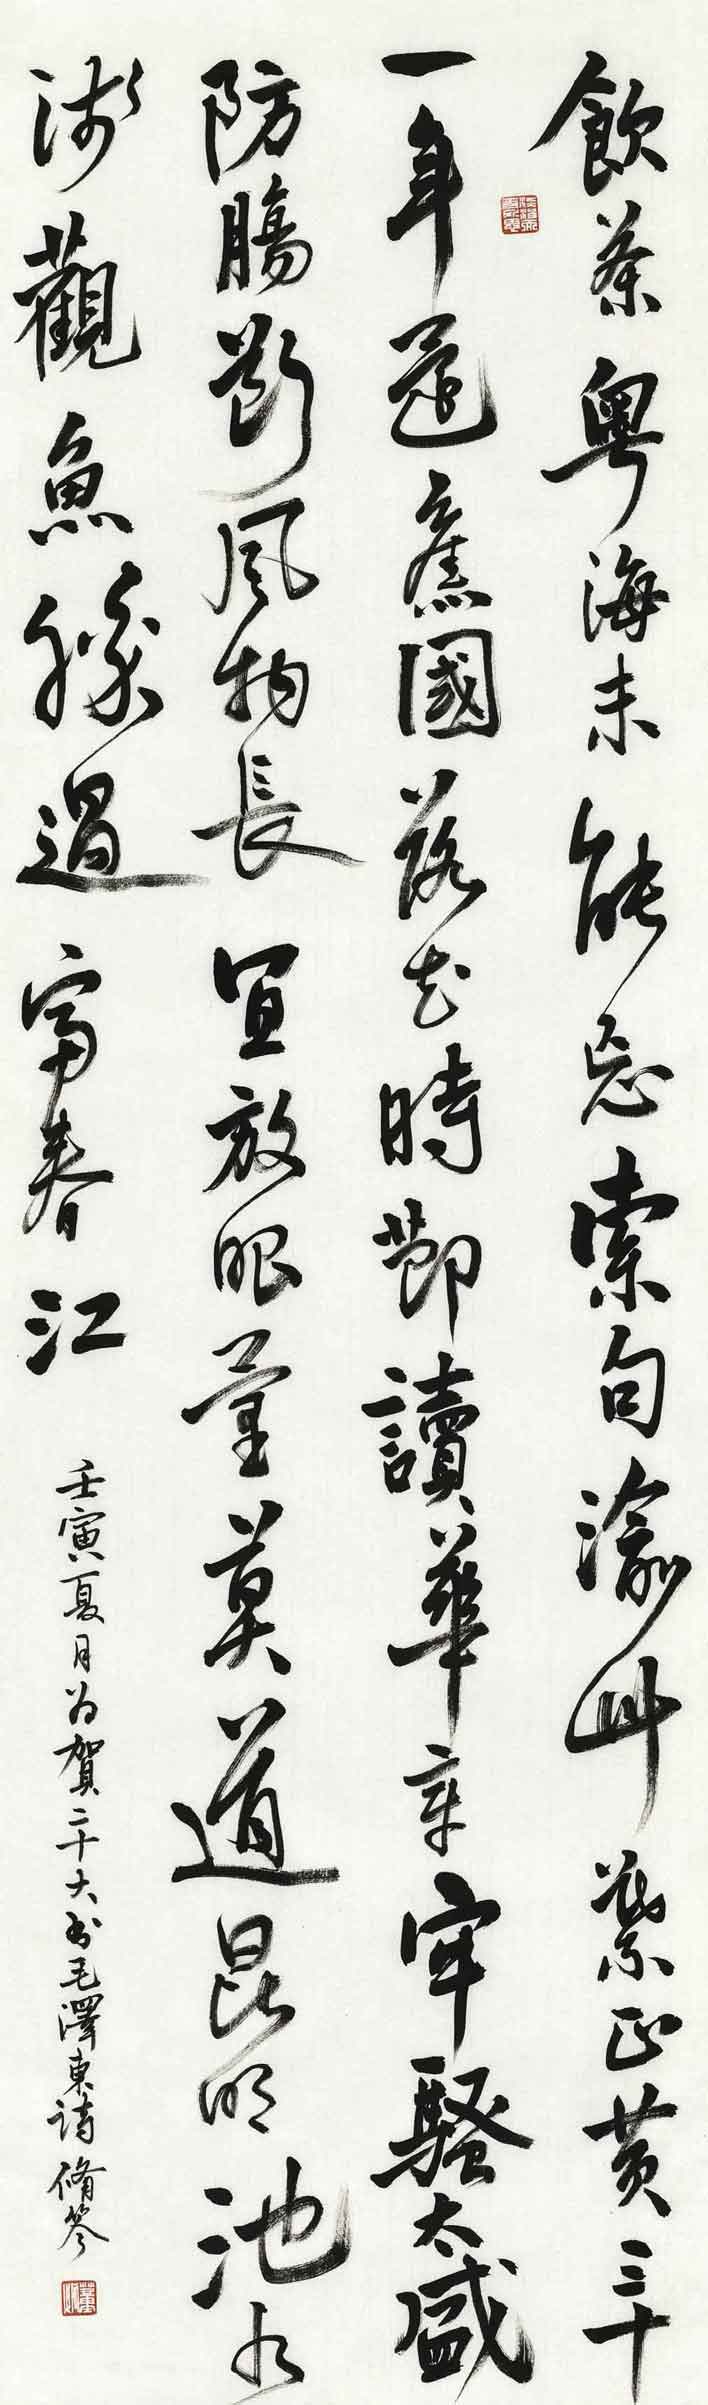 飲茶粤海未能忘索句渝州葉正黄三十
一年還舊國落花時節讀華章牢騷太盛
防腸斷風物長宜放眼量莫道昆明池水
淺觀魚勝過富春江
壬寅夏月为賀二十大书毛澤東詩脩